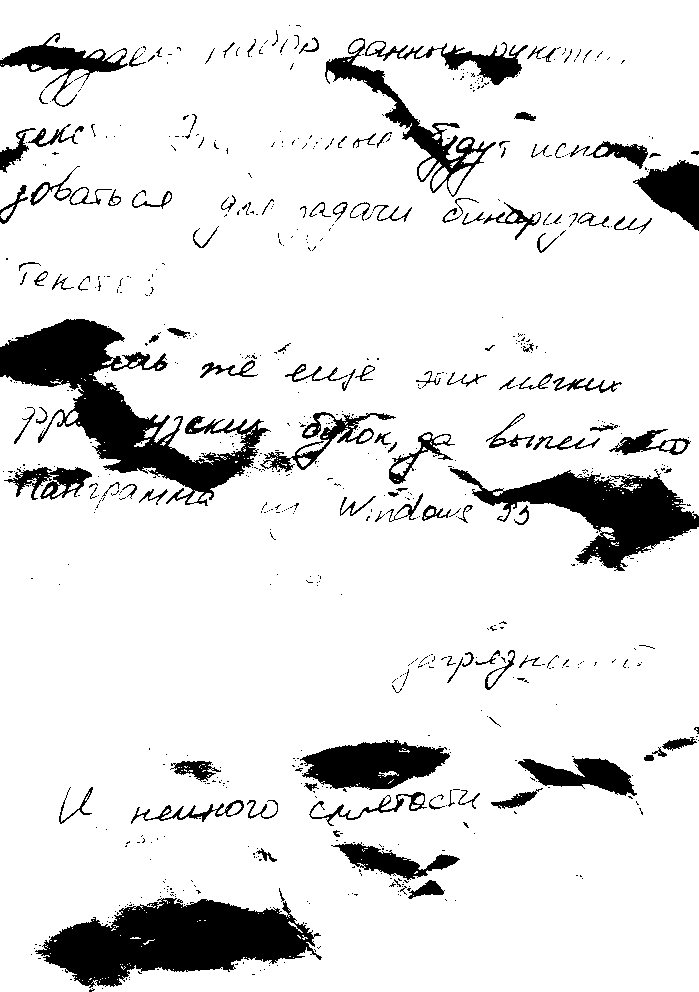 Создаем набор данных рукопис
текст Эти данные будут исполь-
зоваться для задачи бинаризации
текстов
же ещё этих мягких
французских булок, да выпей
Панграмма из Windows 95
загрязнений
И немного смятости